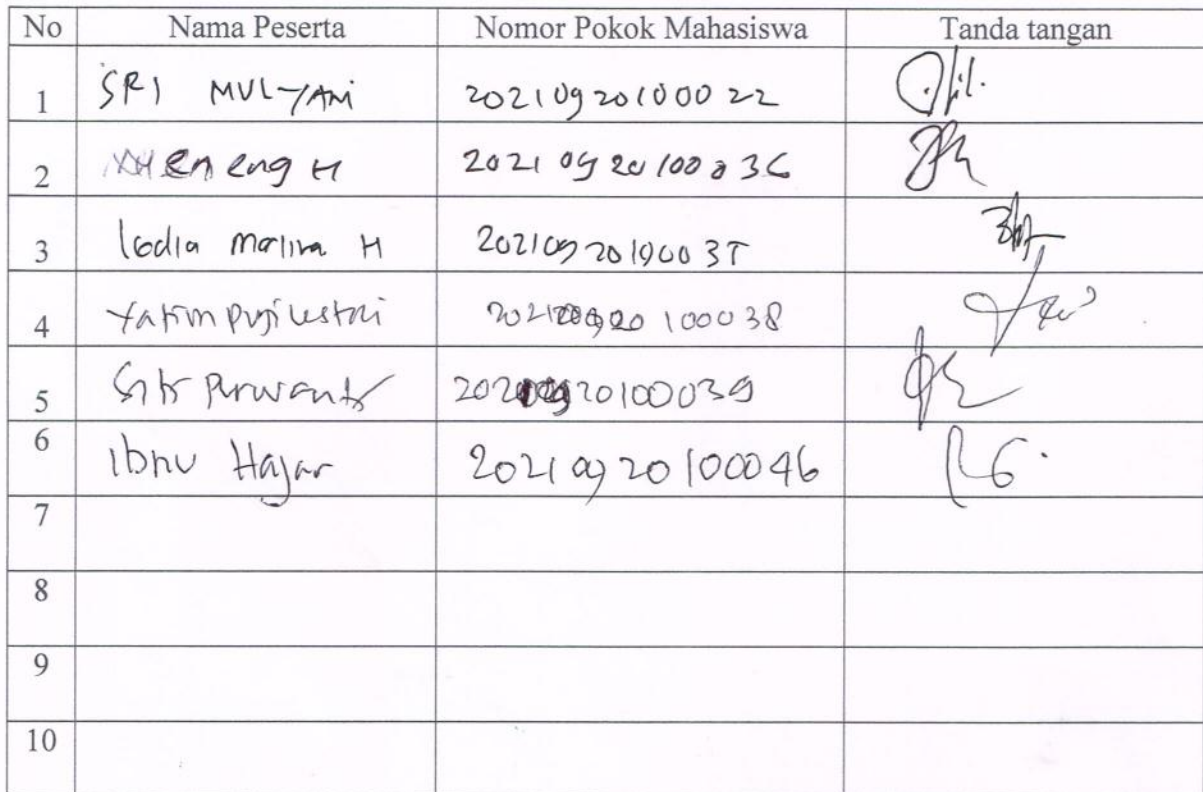 No Nama Peserta Nomor Pokok Mahasiswa Tanda tangan
1 SRI MULYANI 20210920100022
2 Eneng H 20210920100036
3 lodia Marlina H 20210920100037
4 Yatim puji lestari 20210920100038
5 Siti Purwanti 20210920100039
6 Ibnu Hajar 20210920100046
7
8
9
10